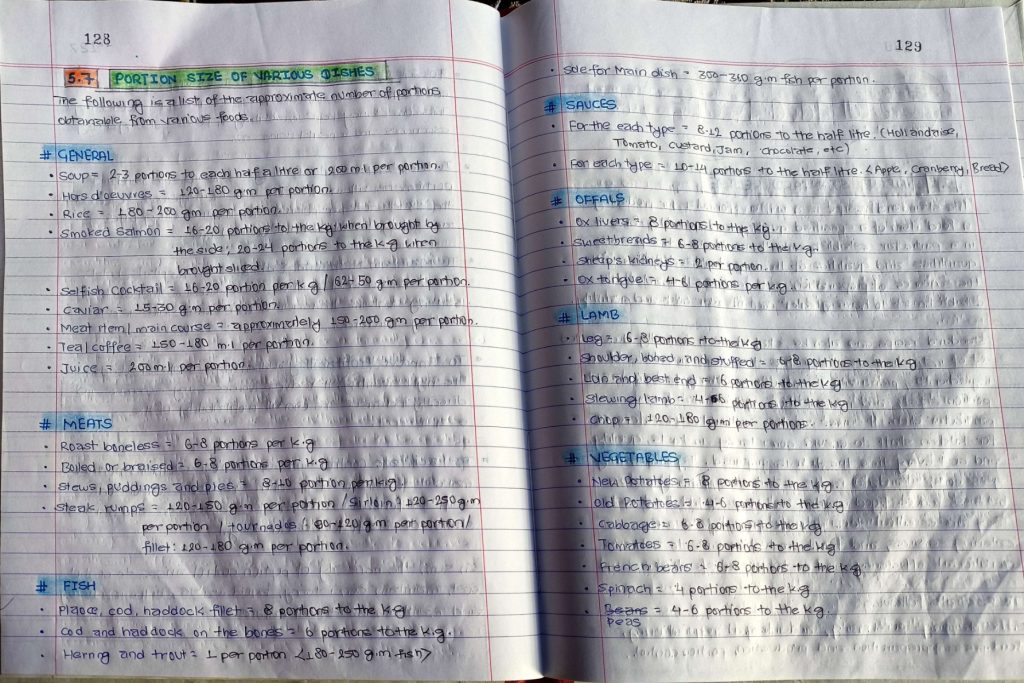 128
5.7 PORTION SIZE OF VARIOUS DISHES
The following is a list of the approximate number of portions
obtainable from various foods.
# GENERAL
• Soup = 2-3 portions to each half a litre or 200 ml per portion.
• Hors d'oeuvres = 120-180 gm per portion.
• Rice = 180-200 gm per portion.
• Smoked Salmon = 16-20 portions to the kg when brought by
the side; 20-24 portions to the kg when
brought sliced.
• Selfish cocktail = 16-20 portion per kg / 62-50 gm per portion.
• Caviar = 15-30 gm per portion.
• Meat item/main course = approximately 150-200 gm per portion.
• Tea/coffee = 150-180 ml per portion.
• Juice = 200 ml per portion.
# MEATS
• Roast boneless = 6-8 portions per k.g
• Boiled or braised = 6-8 portions per k.g
• Stews, puddings and pies = 8-10 portion per k.g.
• Steak, rumps = 120-150 gm per portion / Sirloin: 120-250 g.m
per portion / tournados: 90-120 g.m per portion/
fillet: 120-180 g.m per portion.
# FISH
• Plaice, cod, haddock fillet = 8 portions to the kg
• Cod and haddock on the bones = 6 portions to the k.g.
• Herring and trout = 1 per portion <180-250 g.m fish>
129
• Sole for main dish = 300-360 g.m fish per portion.
# SAUCES
• For the each type = 8-12 portions to the half litre. (Hollandaise,
Tomato, custard, Jam, chocolate, etc)
• For each type = 10-14 portions to the half litre. <Apple, Cranberry, Bread>
# OFFALS
• Ox livers = 8 portions to the kg.
• Sweetbreads = 6-8 portions to the kg.
• Sheep's kidneys = 2 per portion.
• Ox tongue = 4-6 portions per kg.
# LAMB
• Leg = 6-8 portions to the kg
• Shoulder, boned, and stuffed = 6-8 portions to the kg
• Loin and best end = 6 portions to the kg
• Stewing lamb = 4-6 portions to the kg
• Chop = 120-180 gm per portions.
# VEGETABLES
• New Potatoes = 8 portions to the kg.
• Old Potatoes = 4-6 portions to the kg
• Cabbage = 6-8 portions to the kg
• Tomatoes = 6-8 portions to the kg
• French beans = 6-8 portions to the kg
• Spinach = 4 portions to the kg
• Beans = 4-6 portions to the kg.
peas